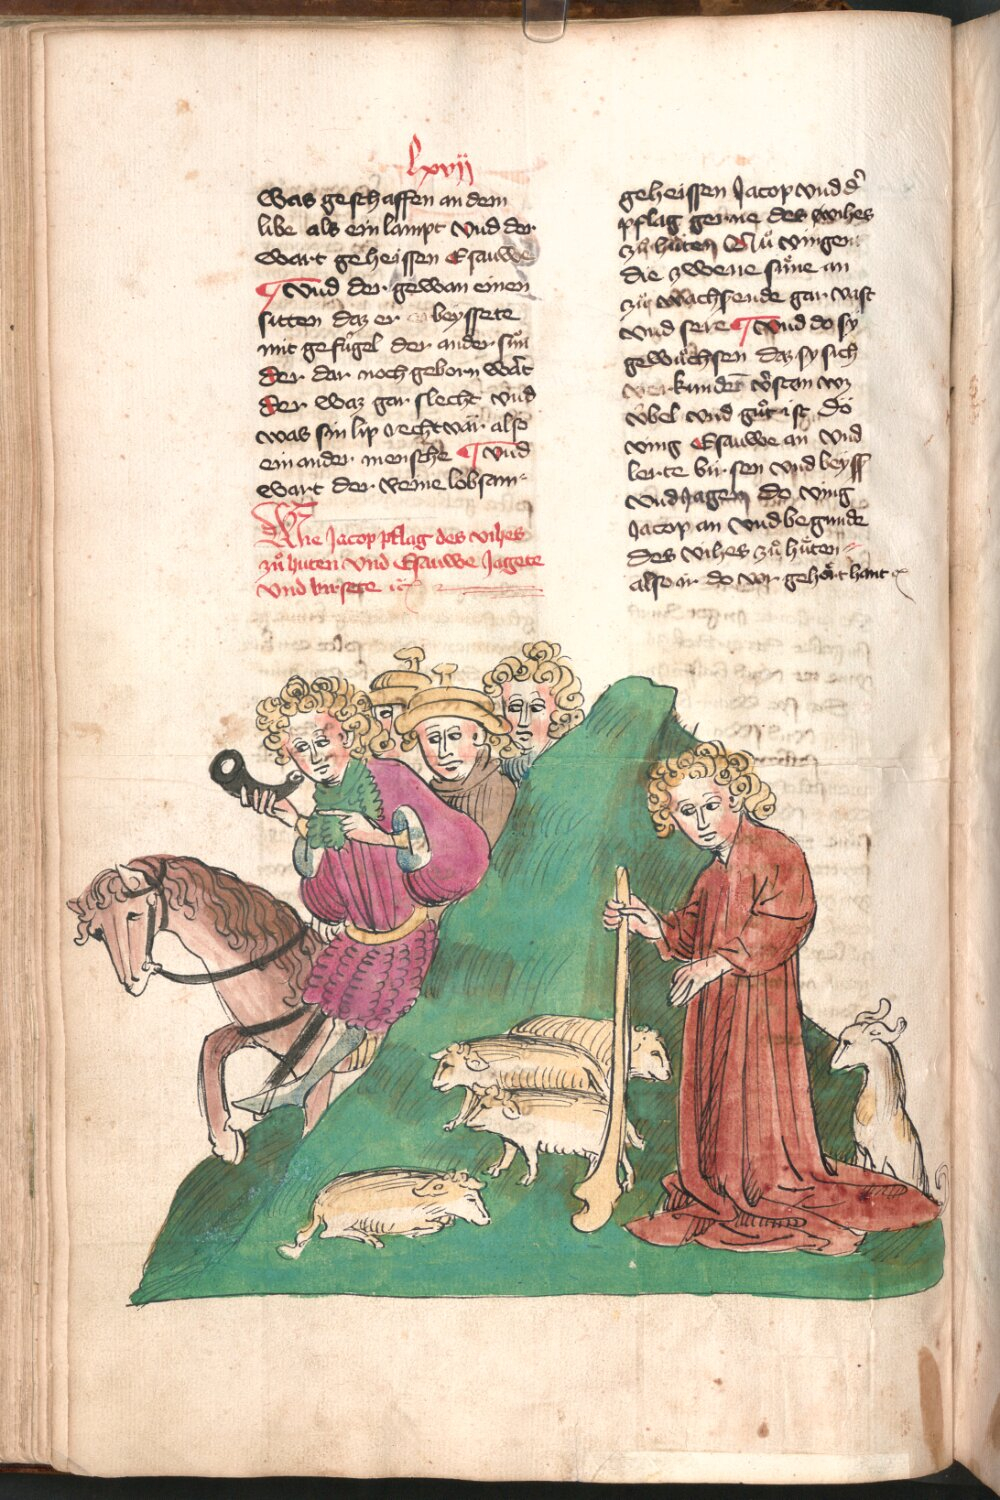 lxvij
was geschaffen an dem
libe als ein lampt vnd der
wart geheissen Esauwe
¶ Vnd der gewan einen
sitten daz er beyssete
mit gefúgel der ander sün
der dar noch geborn wart
der waz gar slecht vnd
was sin lip recht var also
ein ander mensche ¶ Vnd
wart der reine lobsam
Wie Jacop pflag des vihes
zů huten vnd Esauwe Jagete
vnd birsete
geheissen Jacop vnd dˀ
pflag gerne des vihes
zů hůten Nů vingen
die zwene süne an
zů wachssende gar vast
vnd sere ¶ Vnd do sy
gewuchsen daz sy sich
vˀstan wz
vbel vnd gůt ist Do
ving Esauwe an vnd
lerte birsen vnd beyss
vnd Jagen Do ving
Jacop an vnd begunde
des vihes zů hůten
also ir do vor gehört hant